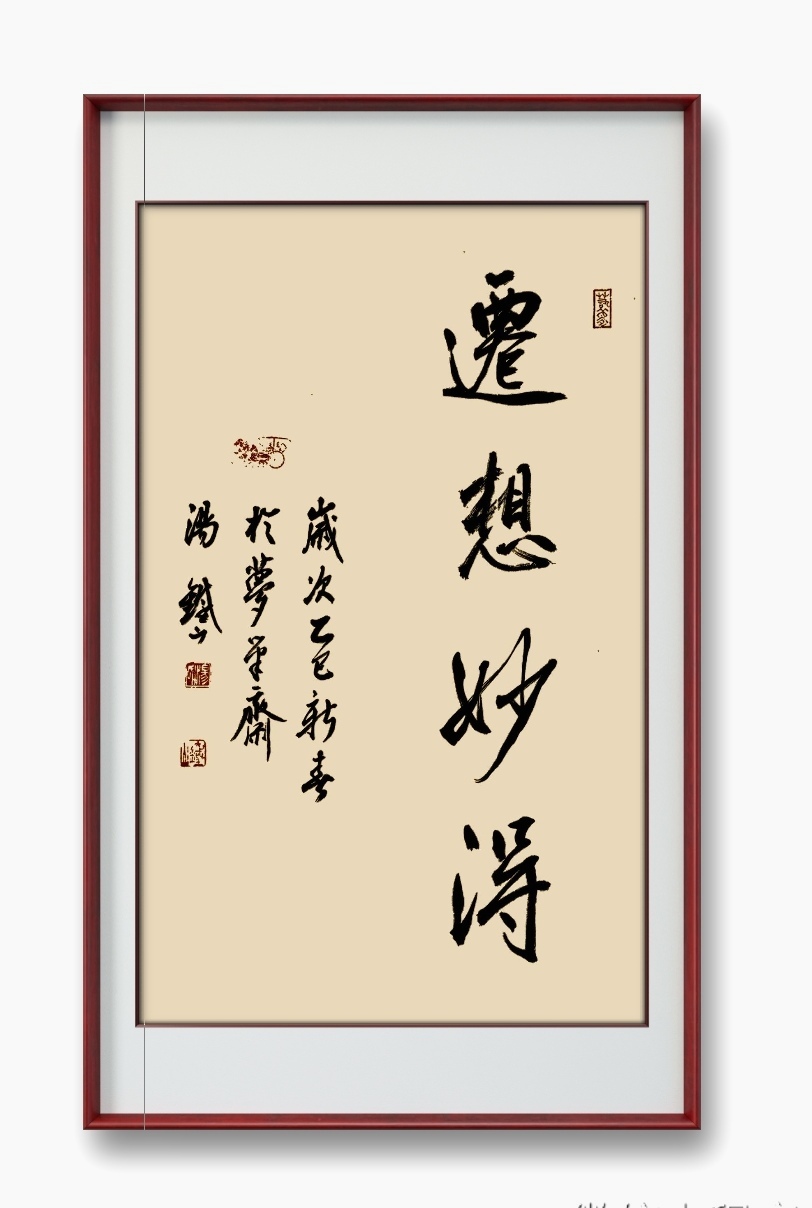 遷想妙得
歲次乙巳新春
於夢筆齋
湯鐵山